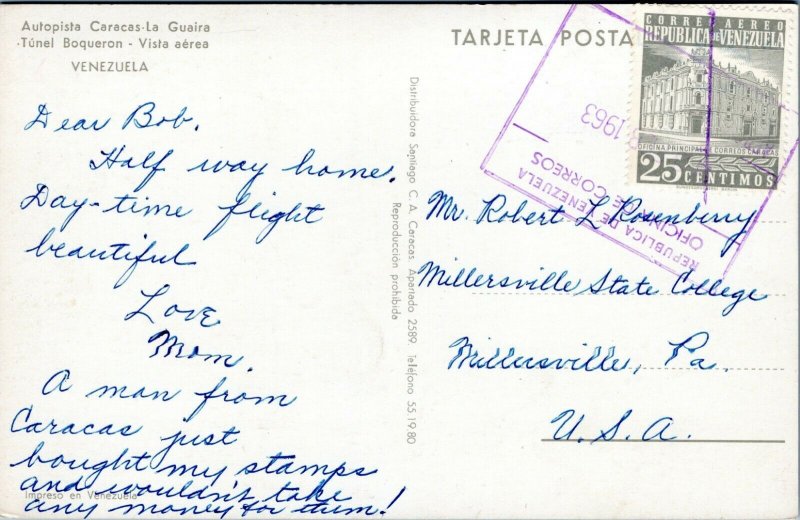 Autopista Caracas-La Guaira
Túnel Boqueron - Vista aérea
VENEZUELA
Dear Bob.
Half way home.
Day-time flight
beautiful
Love
Mom.
A man from
Caracas just
bought my stamps
and wouldn't take
any money for them!
Impreso en Venezuela
Distribuidora Santiago C. A. Caracas. Apartado 2589. Teléfono 55.19.80
Reproducción prohibida
TARJETA POSTA
CORREO AEREO
REPUBLICA DE VENEZUELA
OFICINA PRINCIPAL DE CORREOS CARACAS
25 CENTIMOS
1963
REPUBLICA DE VENEZUELA
OFICINA DE CORREOS
Mr. Robert L Rosenberry
Millersville State College
Millersville, Pa.
U.S.A.